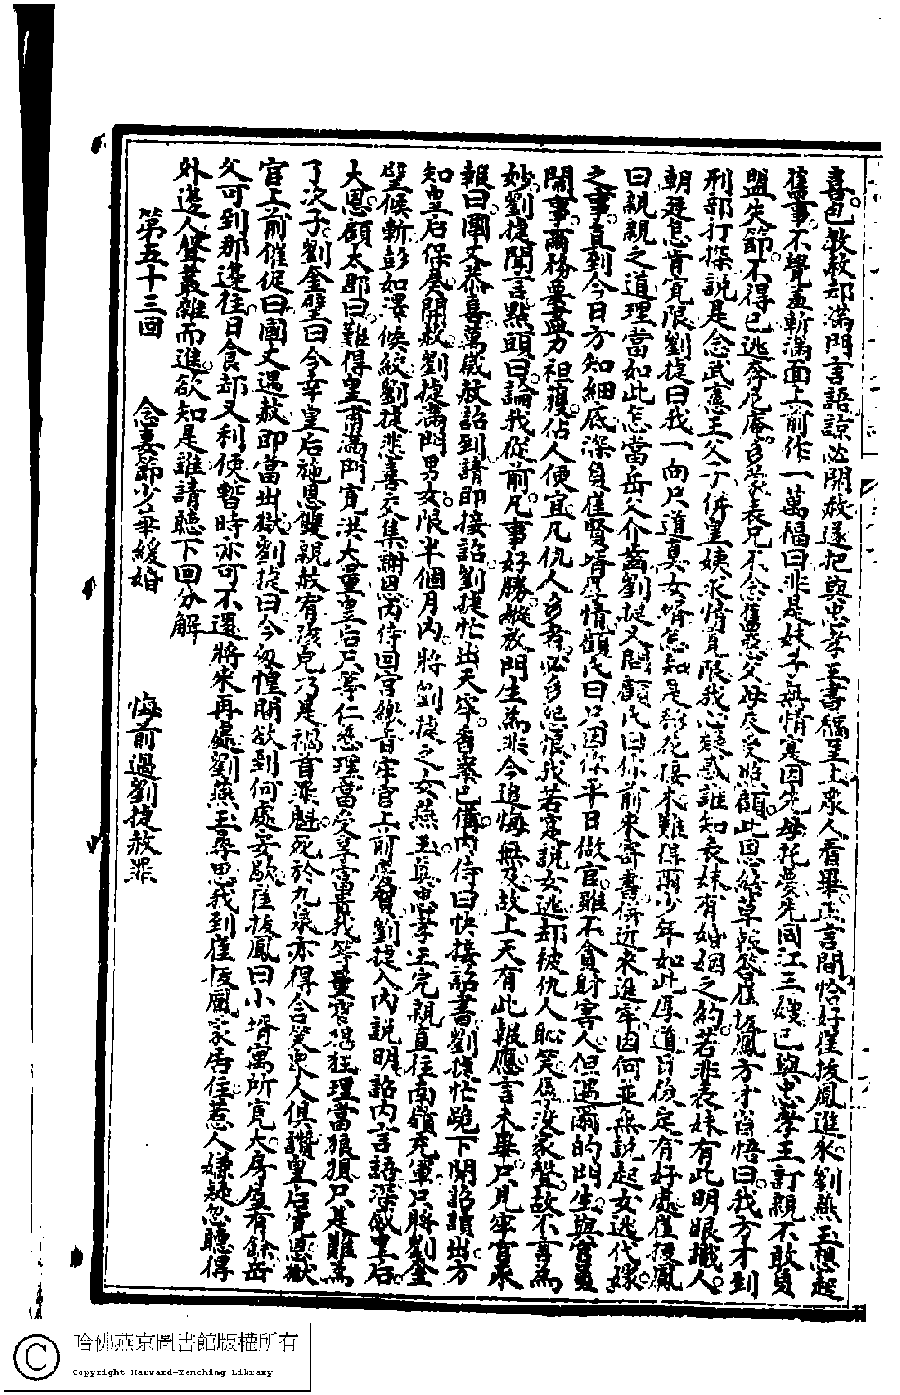 喜色教赦却滿門言語諒必開赦遂把與忠孝王書稿呈上衆人看畢正言間恰好崔攀鳳進來劉燕玉想起
舊事不覺羞慚滿面上前作一萬福曰非是妹子無情寔因先母托夢先同江三嫂已與忠孝王訂親不敢負
盟失節不得已逃奔尼庵多蒙表兄不念舊惡父母反受照顧此恩結草難答崔攀鳳方才省悟曰我方才到
刑部打探説是念武憲王父子併皇姨求情寛限我心疑惑誰知表妹有婚姻之約若非表妹有此明眼識人
朝廷怎肯寛限劉捷曰我一向只道真女婿怎知是移花接木難得爾少年如此厚道日後定有好處崔攀鳳
曰親親之道理當如此怎當岳父介齒劉捷又問顧氏曰你前來寄書併近來進牢因何並無説起女逃代嫁
之事直到今日方知細底深負崔賢婿厚情顧氏曰只因你平日做官雖不貪財害人但遇爾的門生與官員
鬧事爾務要盡力袒護佔人便宜凡仇人多者必多兇狠我若寔説女逃却被仇人恥笑係沒家聲故不言爲
妙劉捷聞言點頭曰論我從前凡事好勝縱放門生為非今追悔無及故上天有此報應言未畢只見牢官來
報曰國丈恭喜萬歲赦詔到請即接詔劉捷忙出天牢香案已備内侍曰快接詔書劉捷忙跪下開詔讀出方
知皇后保奏開赦劉捷滿門男女限半個月内將劉捷之女燕玉與忠孝王完親直往南嶺充軍只將劉奎
璧候斬彭如澤候絞劉捷悲喜交集謝恩内侍回宮繳旨牢官上前恭賀劉捷入内説明詔内言語深感皇后
大恩顧太郡曰難得皇甫滿門寛洪大量皇后只等仁慈理當受享富貴我等量窄想狂理當狼狽只是難為
了次子劉奎璧曰今幸皇后施恩雙親赦宥孩兒乃是禍首罪魁死於九泉亦得含笑衆人俱讚皇后寛恩獄
官上前催促曰國丈遇赦即當出獄劉捷曰今匆惶間欲到何處安歇崔攀鳳曰小婿寓所寛大房屋有餘岳
父可到那邊往日食部又利便暫時亦可不還將來再處劉燕玉尋思我到崔攀鳳家居住惹人嫌疑忽聽得
外邊人聲叢雜而進欲知是誰請聽下回分解
第五十三回　念妻節少華緩婚　悔前過劉捷赦罪
哈佛燕京圖書館版權所有
Copyright Harvard-Yenching Library